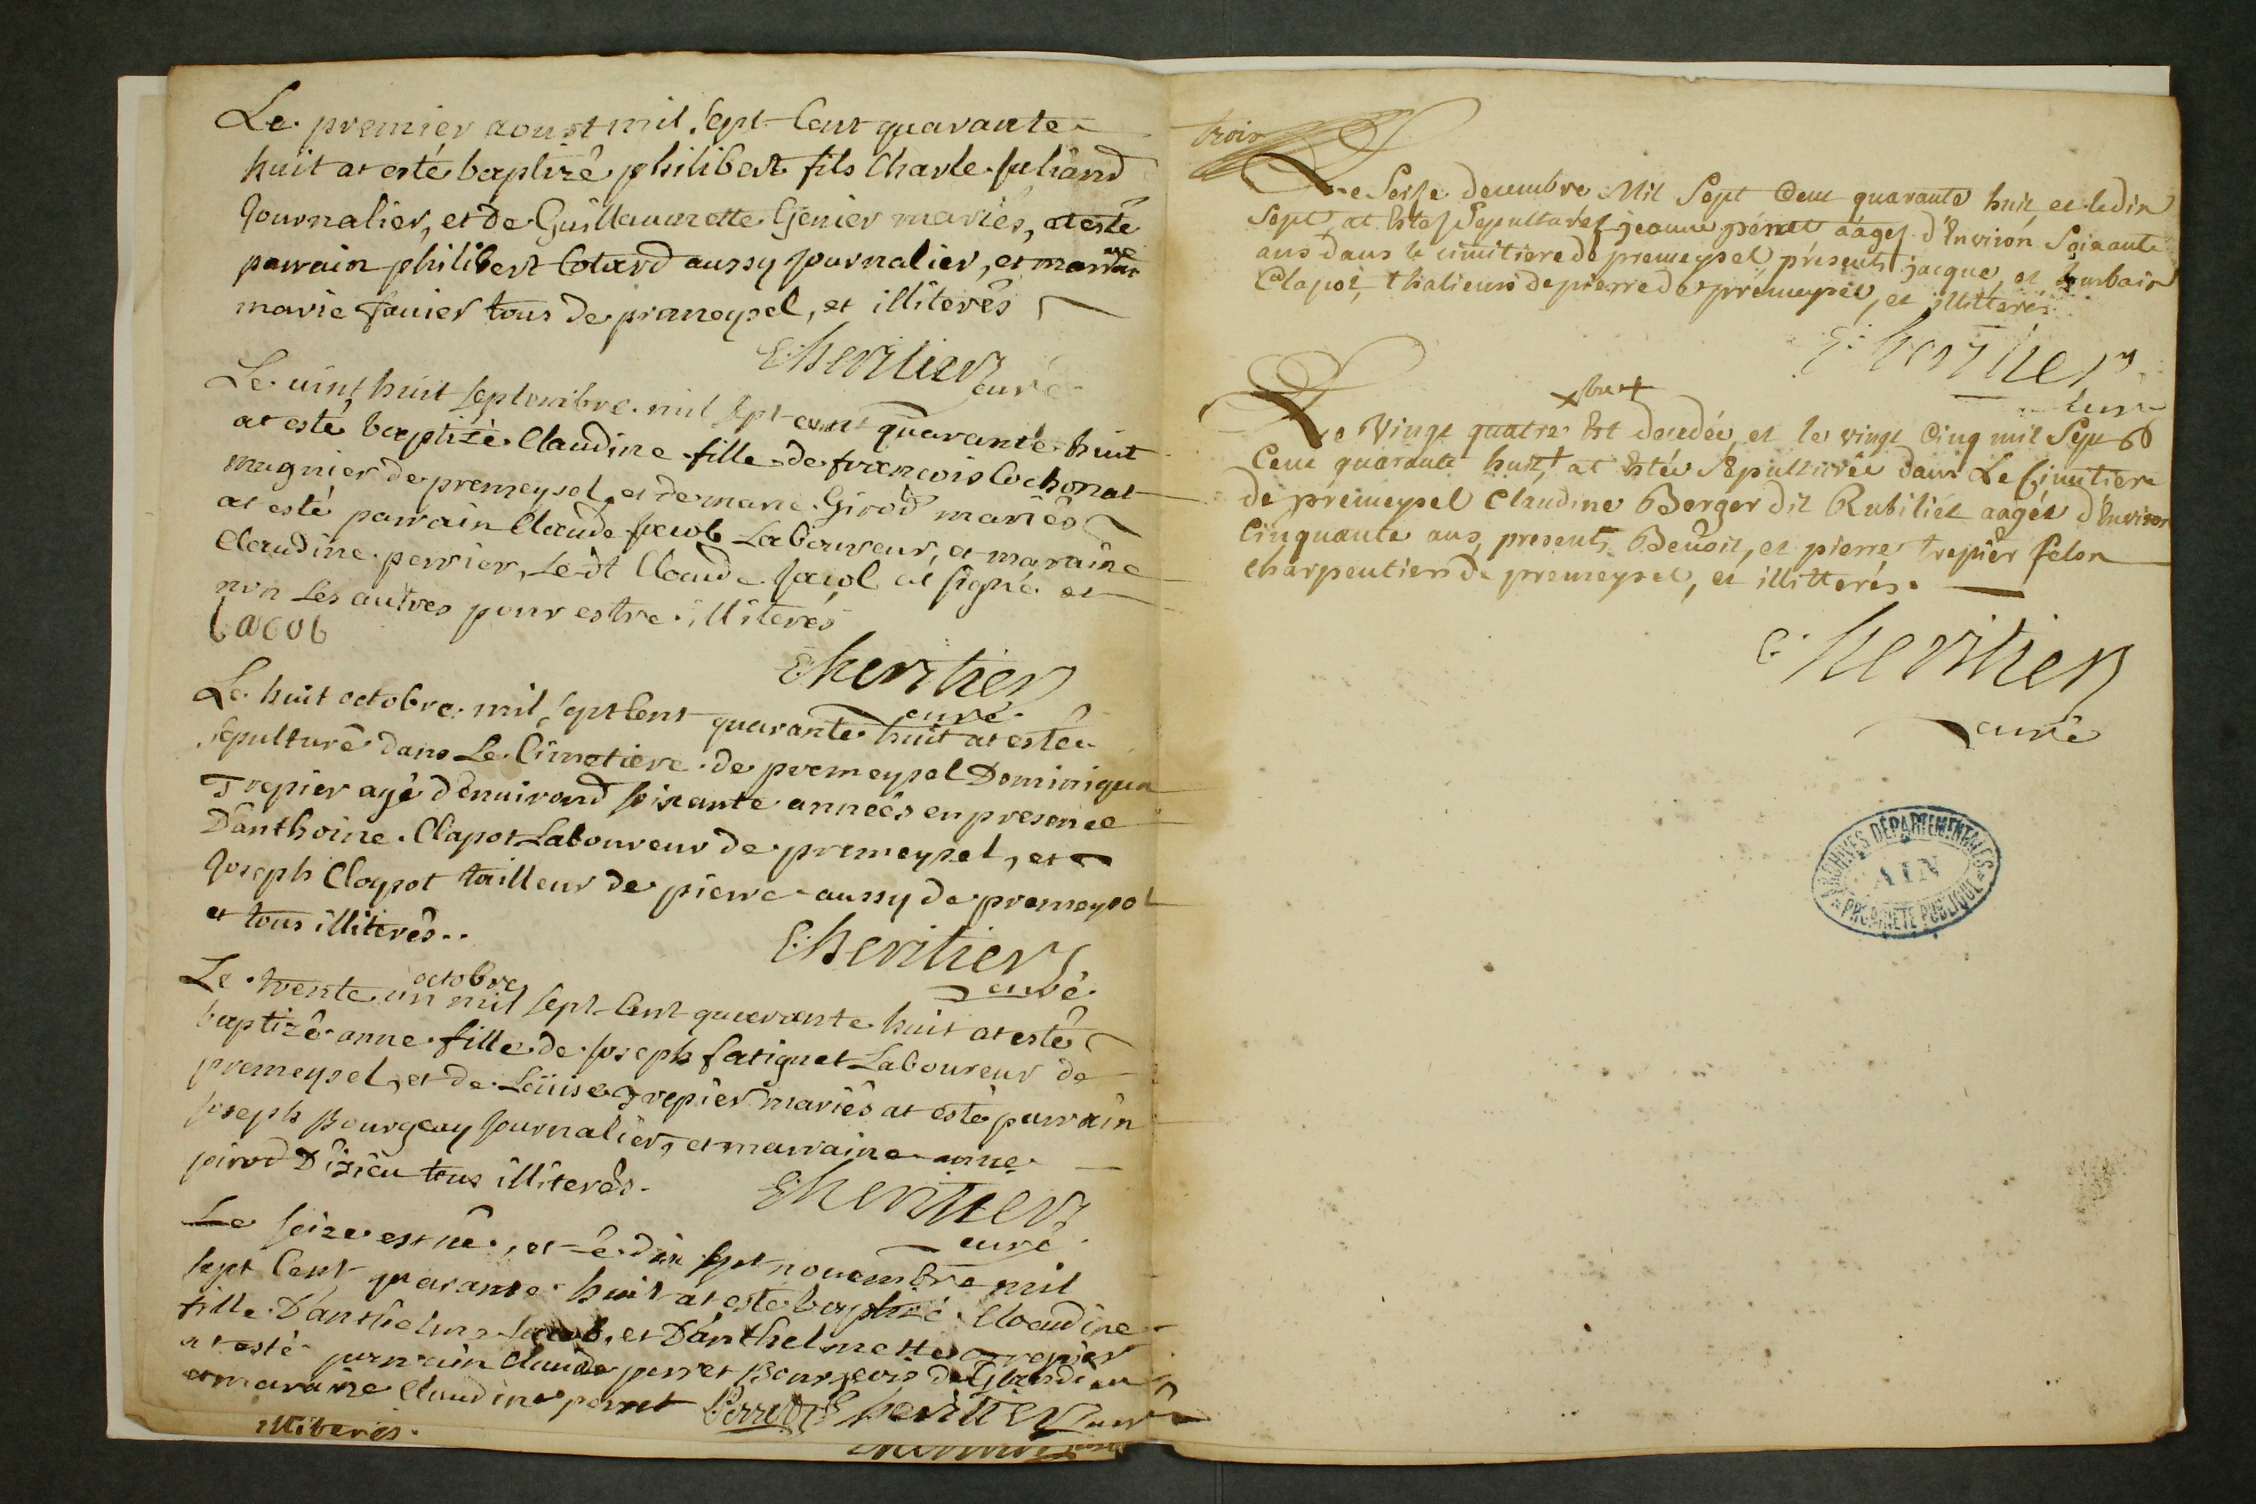 Le premier aoust mil sept Cent quarante
huit at esté baptizé philibert fils Charle Juliand
Journalier, et de Guillaumette Genier mariés, at esté
parrain philibert Cotard aussy journalier, et marraine
marie Janier tous de premeysel, et illiterés
E: heritier curé
Le uint huit septembre mil sept cent quarante huit
at esté baptizé Claudine fille de francois Cochonat
mugnier de premeysel, et de marie Girod mariés
at esté parrain Claude Jacob Laboureur, et maraine
Claudine perrier, Le dt Claude Jacob at signé et
non Les autres pour estre illiterés
Jacob
E heritier
curé
Le huit octobre mil sept Cent quarante huit at esté
sepulturé dans Le Cimetiere de premeysel Dominique
Trepier agé d'enuirond soixante années en presence
D'anthoine Clapot Laboureur de premeysel, et
Joseph Claypot tailleur de pierre aussy de premeysel
et tous illiterés..
E: heritier
curé
octobre
Le trente un mil sept Cent quarante huit at esté
baptizé anne fille de Joseph fatiguet Laboureur de
premeysel, et de Loüise Trepier mariés at esté parrain
Joseph Bourgeay Journalier, et marraine anne
pirod D'izieu tous illiterés.
E heritier
curé
Le seize est né, et Le dix sept nouembre mil
sept Cent quarante huit at esté baptizé Claudine
fille D'anthelme Jacob, et D'anthelmette Trepier
at esté parrain Claude perret Bourgeois de Glandieu
et maraine Claudine perret Perret E heritier curé
illiterés.
trois
Le Seize decembre Mil Sept Cent quarante huit et le dix
Sept, at Esté Sepulturée jeanne aagée d'Environ Soixante
ans dans le cimitiere de premeysel présents jacque, et hurbain
Clapot, thalieurs de pierre de premeysel, et illitterés
E: heritier
curé
Le Vingt quatre Est decedée, et le vingt Cinq mil Sept
Cent quarante huit, + at Estée Sepulturée dans Le Cimitiere
de premeysel Claudine Berger dit Rubiliet aagée d'Environ
Cinquante ans, presents Benoit, et pierre Trepier felon
charpentiers de premeysel, et illitterés.
E: heritier
curé
ARCHIVES DÉPARTEMENTALES
AIN
PROPRIÉTÉ PUBLIQUE